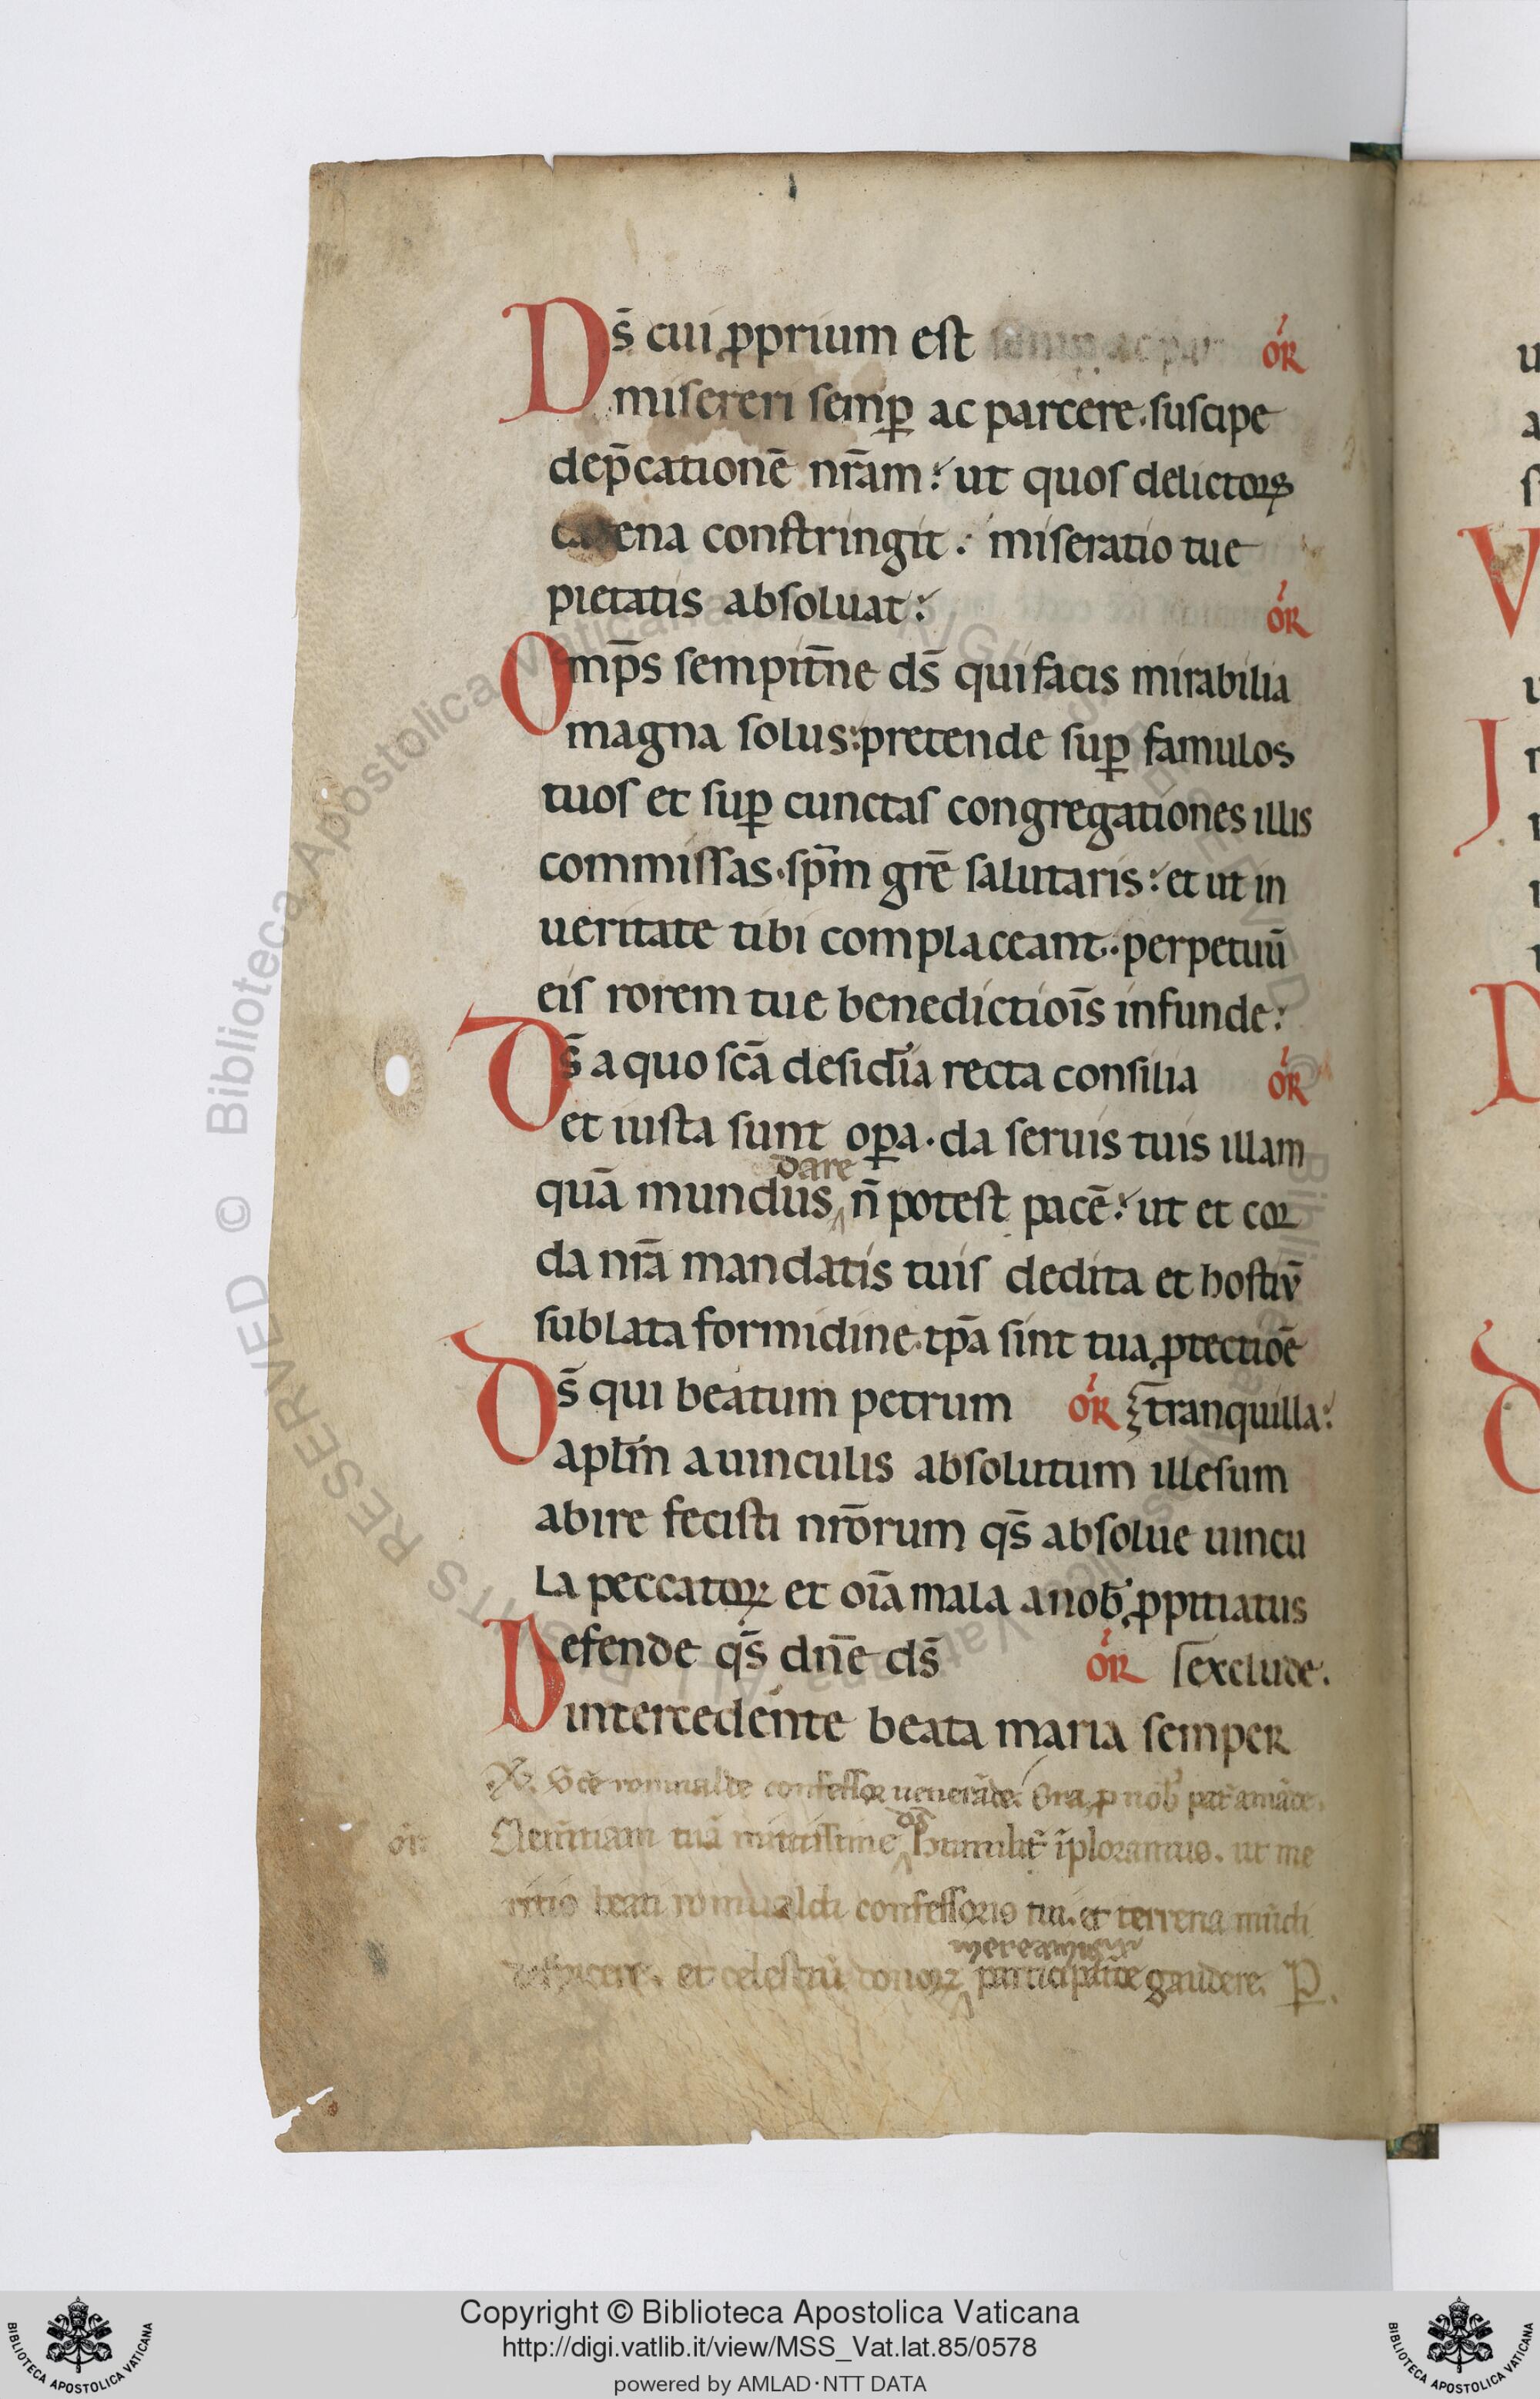 Ds̄ cui ꝓprium est semꝑ ac par oŕR
misereri semꝑ ac parcere. suscipe
dep̄cationē nr̄am: ut quos delictoꝝ
catena constringit: miseratio tue
pietatis absoluat: oŕR
Omp̄s sempit̄ne ds̄ qui facis mirabilia
magna solus: pretende suꝑ famulos
tuos et suꝑ cunctas congregationes illis
commissas. sp̄m gr̄e salutaris: et ut in
ueritate tibi complaceant. perpetuū
eis rorem tue benedictiōis infunde:
Ds̄ a quo sc̄a desid̄ia recta consilia oŕR
et iusta sunt oꝑa. da seruis tuis illam
dare
quā mundus n̄ potest pacē: ut et cor
da nr̄a mandatis tuis dedita et hostiū
sublata formidine. tp̄a sint tua ꝓtectiōe
Ds̄ qui beatum petrum oŕR tranquilla:
apl̄m a uinculis absolutum illesum
abire fecisti nr̄orum qs̄ absolue uincu
la peccatoꝝ et oīa mala a nob̓ ꝓpitiatus
Defende qs̄ dn̄e ds̄ oŕR exclude.
intercedente beata maria semper
Sc̄e romualde confessor uenerāde. Ora ꝓ nob̓ pat̄ amāde.
ds̄
or̄ Clem̄tiam tuā mitissime humilit̄ īploramus. ut me
ritis beati romualdi confessoris tui. et terrena mūdi
mereamur
despicere. et celestiū donoꝝ participatiōe gaudere. P̱.
Copyright © Biblioteca Apostolica Vaticana
http://digi.vatlib.it/view/MSS_Vat.lat.85/0578
powered by AMLAD·NTT DATA
BIBLIOTECA APOSTOLICA VATICANA
BIBLIOTECA APOSTOLICA VATICANA